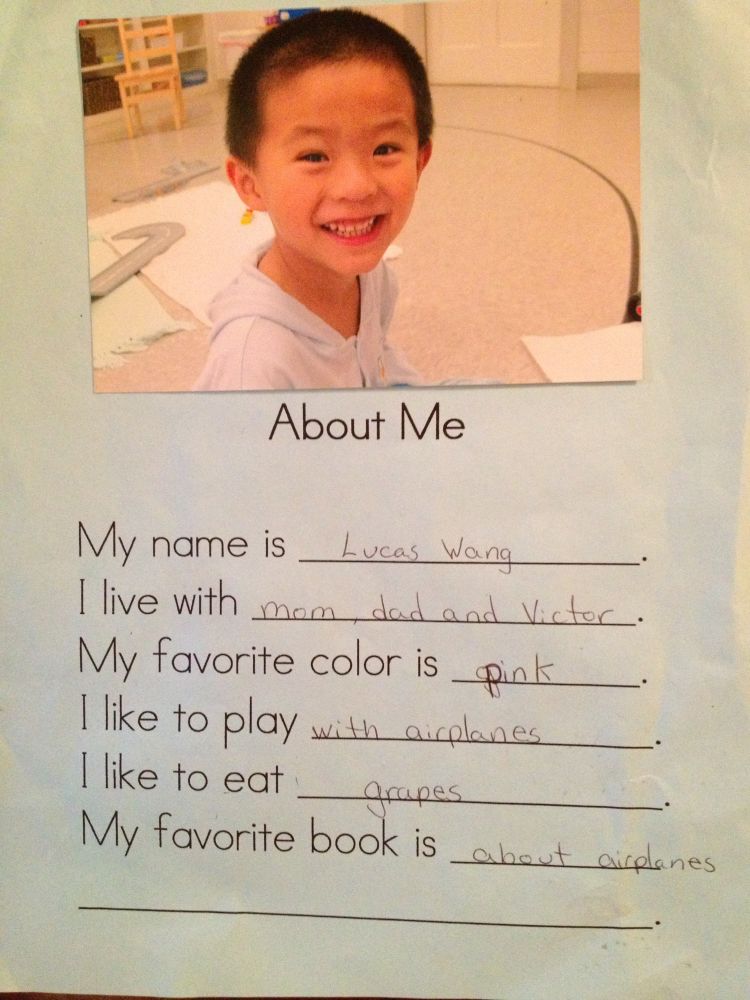 About Me
My name is Lucas Wang.
I live with mom, dad and Victor.
My favorite color is pink.
I like to play with airplanes.
I like to eat grapes.
My favorite book is about airplanes
.